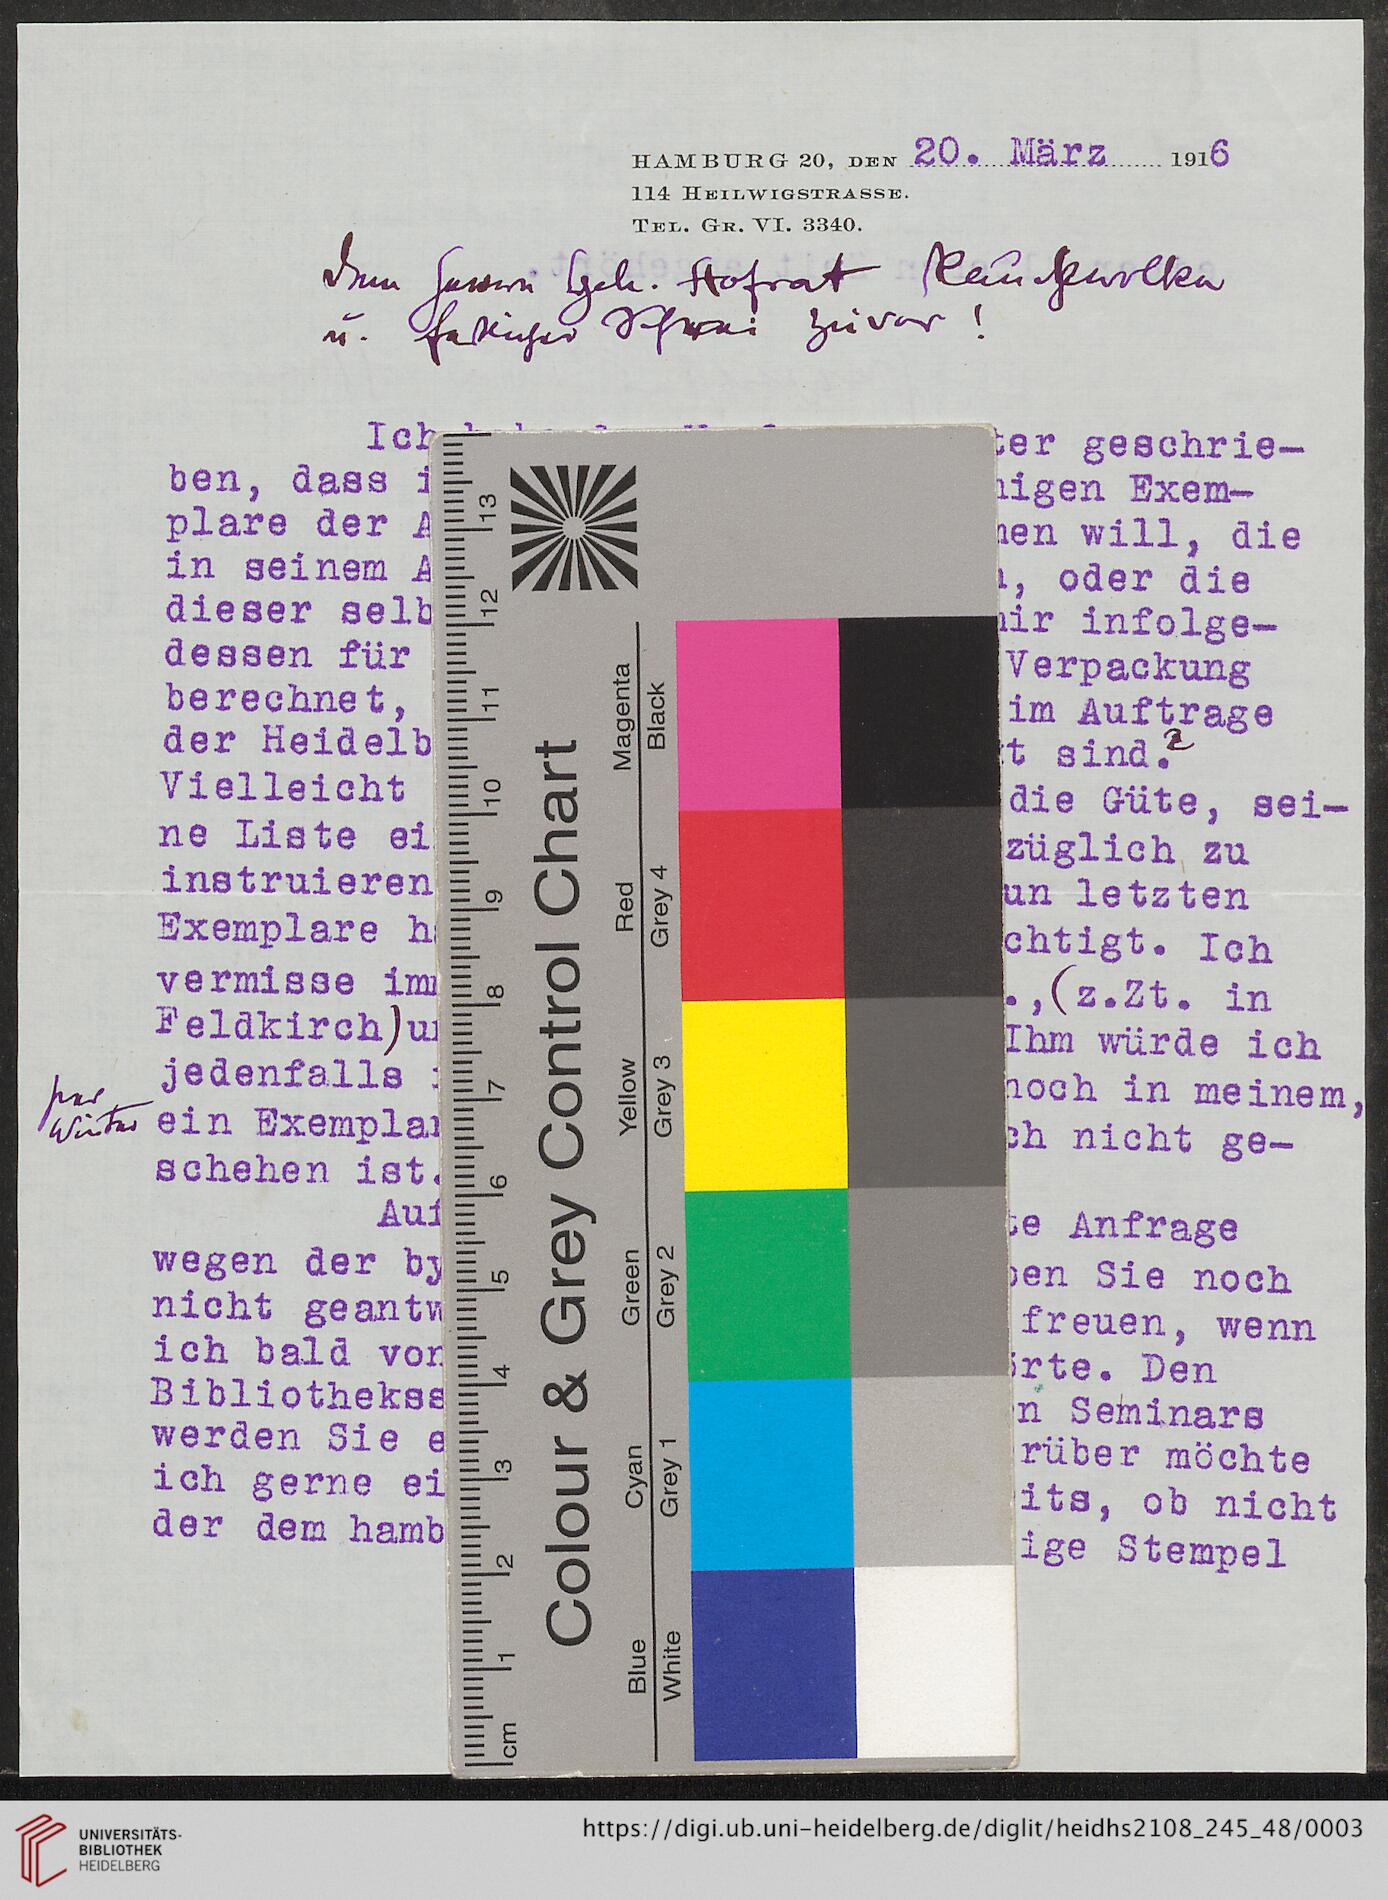 HAMBURG 20, DEN 20. März 1916
114 HEILWIGSTRASSE.
TEL. GR. VI. 3340.
Herrn Geh. Hofrat
u. zuvor!
Ich ter geschrie-
ben, dass i nigen Exem-
plare der A nen will, die
in seinem A , oder die
dieser selb mir infolge-
dessen für Verpackung
berechnet, im Auftrage
der Heidelb t sind.
Vielleicht die Güte, sei-
ne Liste ei züglich zu
instruieren un letzten
Exemplare h chtigt. Ich
vermisse imm .,(z.Zt. in
Feldkirch)un Ihm würde ich
jedenfalls noch in meinem,
per
Winter
ein Exemplar ch nicht ge-
schehen ist.
Auf te Anfrage
wegen der by ben Sie noch
nicht geantw freuen, wenn
ich bald von örte. Den
Bibliothekss n Seminars
werden Sie e rüber möchte
ich gerne ei its, ob nicht
der dem hamb ige Stempel
Colour & Grey Control Chart
Magenta Red Yellow Green Cyan Blue
Black Grey 4 Grey 3 Grey 2 Grey 1 White
13 12 11 10 9 8 7 6 5 4 3 2 1 cm
UNIVERSITÄTS-
BIBLIOTHEK
HEIDELBERG
https://digi.ub.uni-heidelberg.de/diglit/heidhs2108_245_48/0003